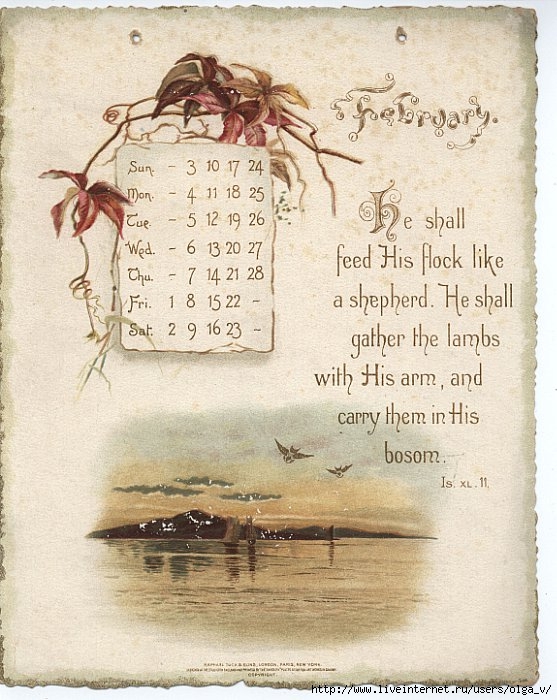 February.
Sun. - 3 10 17 24
Mon. - 4 11 18 25
Tue. - 5 12 19 26
Wed. - 6 13 20 27
Thu. - 7 14 21 28
Fri. 1 8 15 22 -
Sat. 2 9 16 23 -
He shall
feed His flock like
a shepherd. He shall
gather the lambs
with His arm, and
carry them in His
bosom.
Is. XL. 11.
RAPHAEL TUCK & SONS, LONDON, PARIS, NEW YORK.
COPYRIGHT.
http://www.liveinternet.ru/users/olga_v/